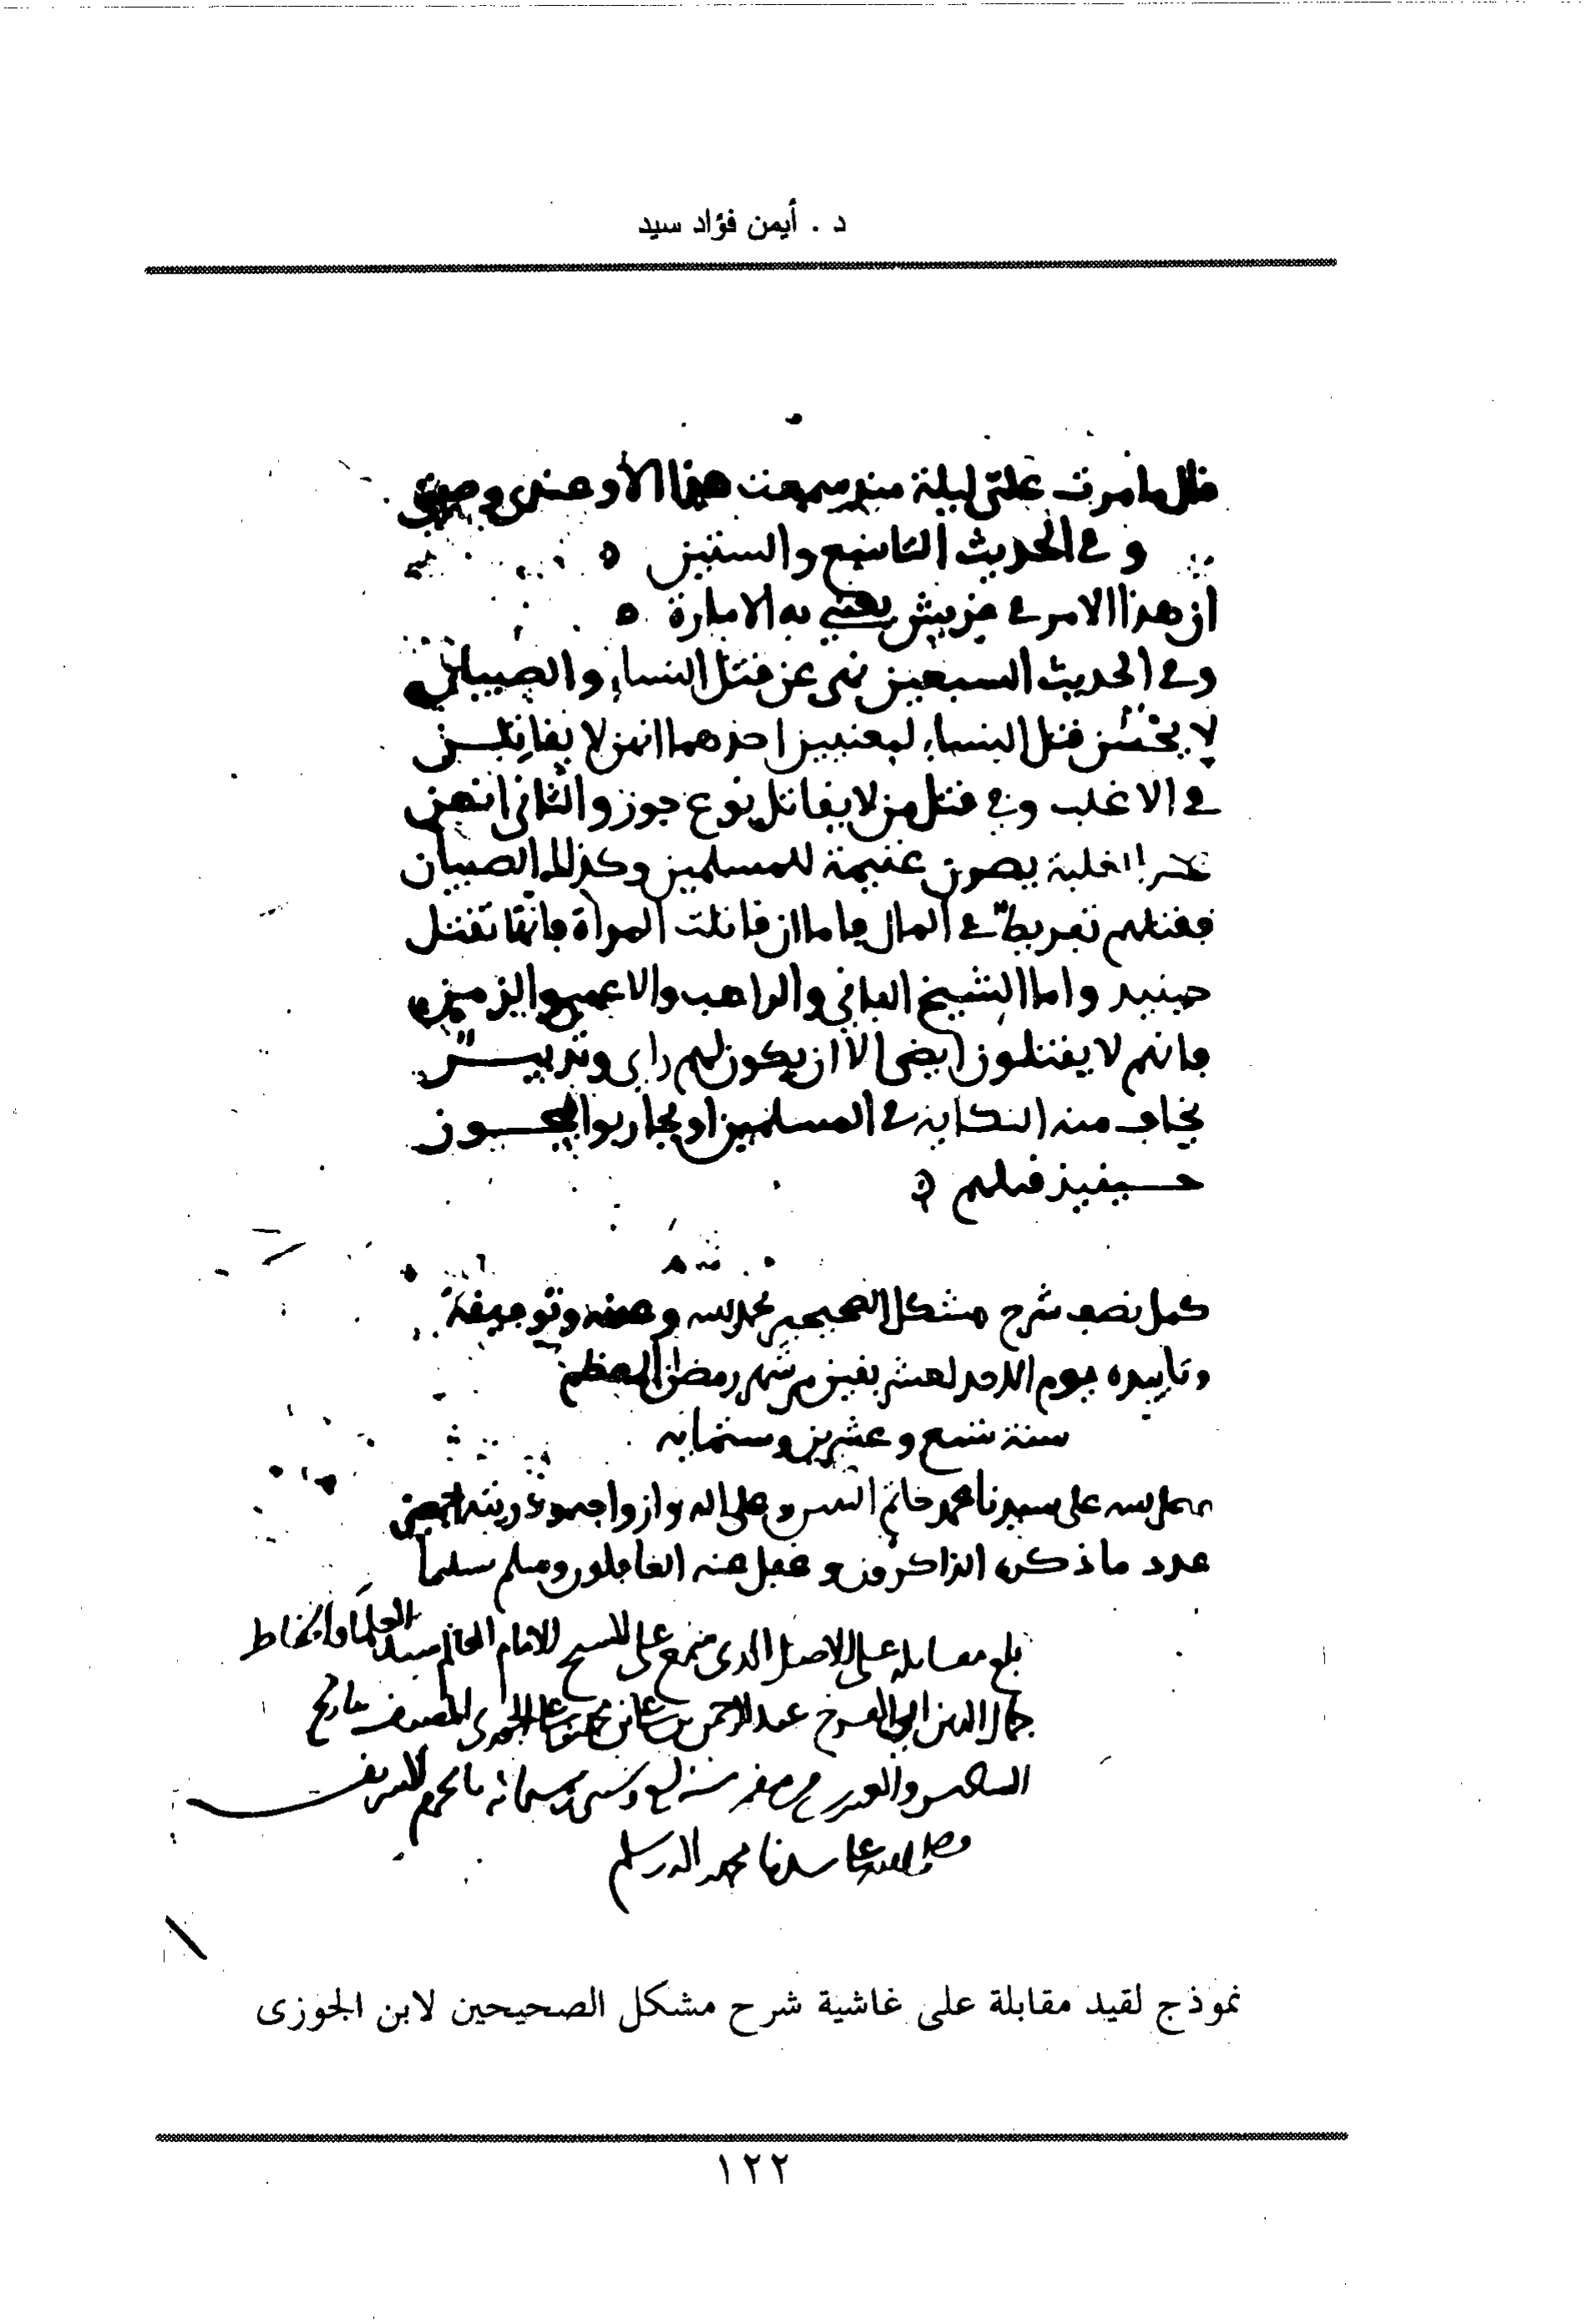 د . أيمن فؤاد سيد
قال ما مرت علي ليلة منذ سمعت هذا الا وعندي وصيتي
وفي الحديث التاسع والستين
ان هذا الامر في قريش يعني به الامارة
وفي الحديث السبعين نهى عن قتل النساء والصبيان
لا يحسن قتل النساء لمعنيين احدهما انهن لا يقاتلن
في الاغلب وفي قتل من لا يقاتل نوع جور والثاني انهن
عند الغلبة يصرن غنيمة للمسلمين وكذلك الصبيان
فقتلهم تفريط في المال فاما ان قاتلت المرأة فانها تقتل
حينيذ واما الشيخ الفاني والراهب والاعمى والزمن
فانهم لا يقتلون ايضا الا ان يكون لهم راي وتدبير
يخاف منه النكاية في المسلمين او يحاربوا فيجوز
حينيذ قتلهم
كمل نصف شرح مشكل الصحيحين بحمد الله وعونه وتوفيقه
وتاييده يوم الاحد لعشر بقين من شهر رمضان المعظم
سنة تسع وعشرين وستمايه
صلى الله على سيدنا محمد خاتم النبيين وعلى اله وازواجه وذريته اجمعين
عدد ما ذكره الذاكرون وغفل عنه الغافلون وسلم تسليما
بلغ مقابلة على الاصل الذي على الشيخ الامام العالم سيد العلما والحفاظ
جمال الدين ابي الفرج عبد الرحمن بن علي بن محمد بن علي الجوزي المصنف بتاريخ
من صفر سنة وخمسمائة بالحرم الشريف
وصلى الله على سيدنا محمد واله وسلم
نموذج لقيد مقابلة على غاشية شرح مشكل الصحيحين لابن الجوزى
١٢٢